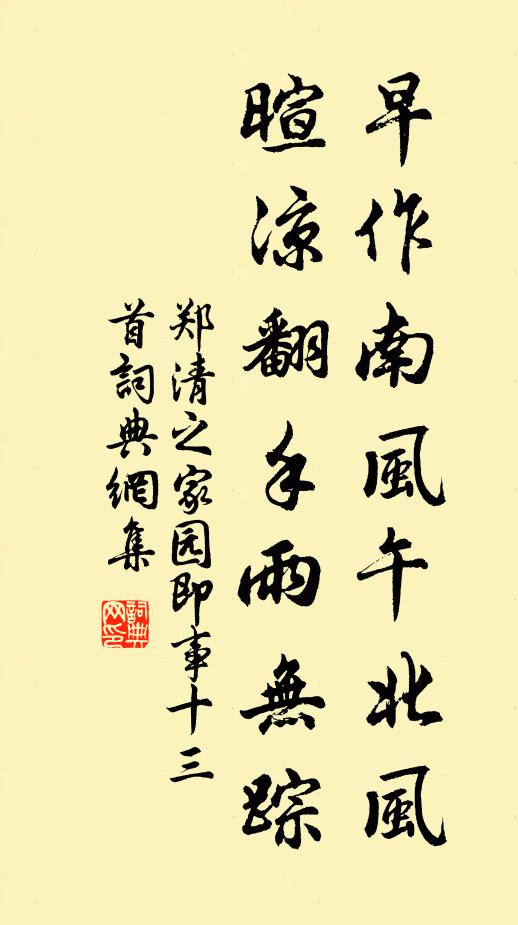 早作南風午北風
暄涼翻手雨無踪
郑清之家园即事十三
首詞典網集
詞典
网印